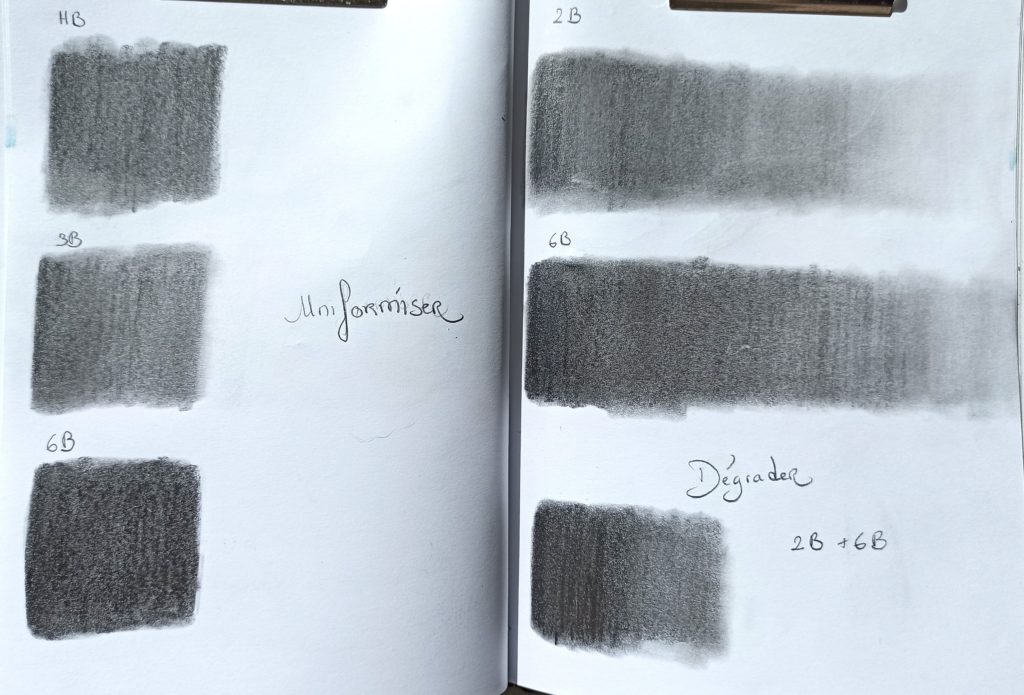 HB
3B
Uniformiser
6B
2B
6B
Dégrader
2B + 6B